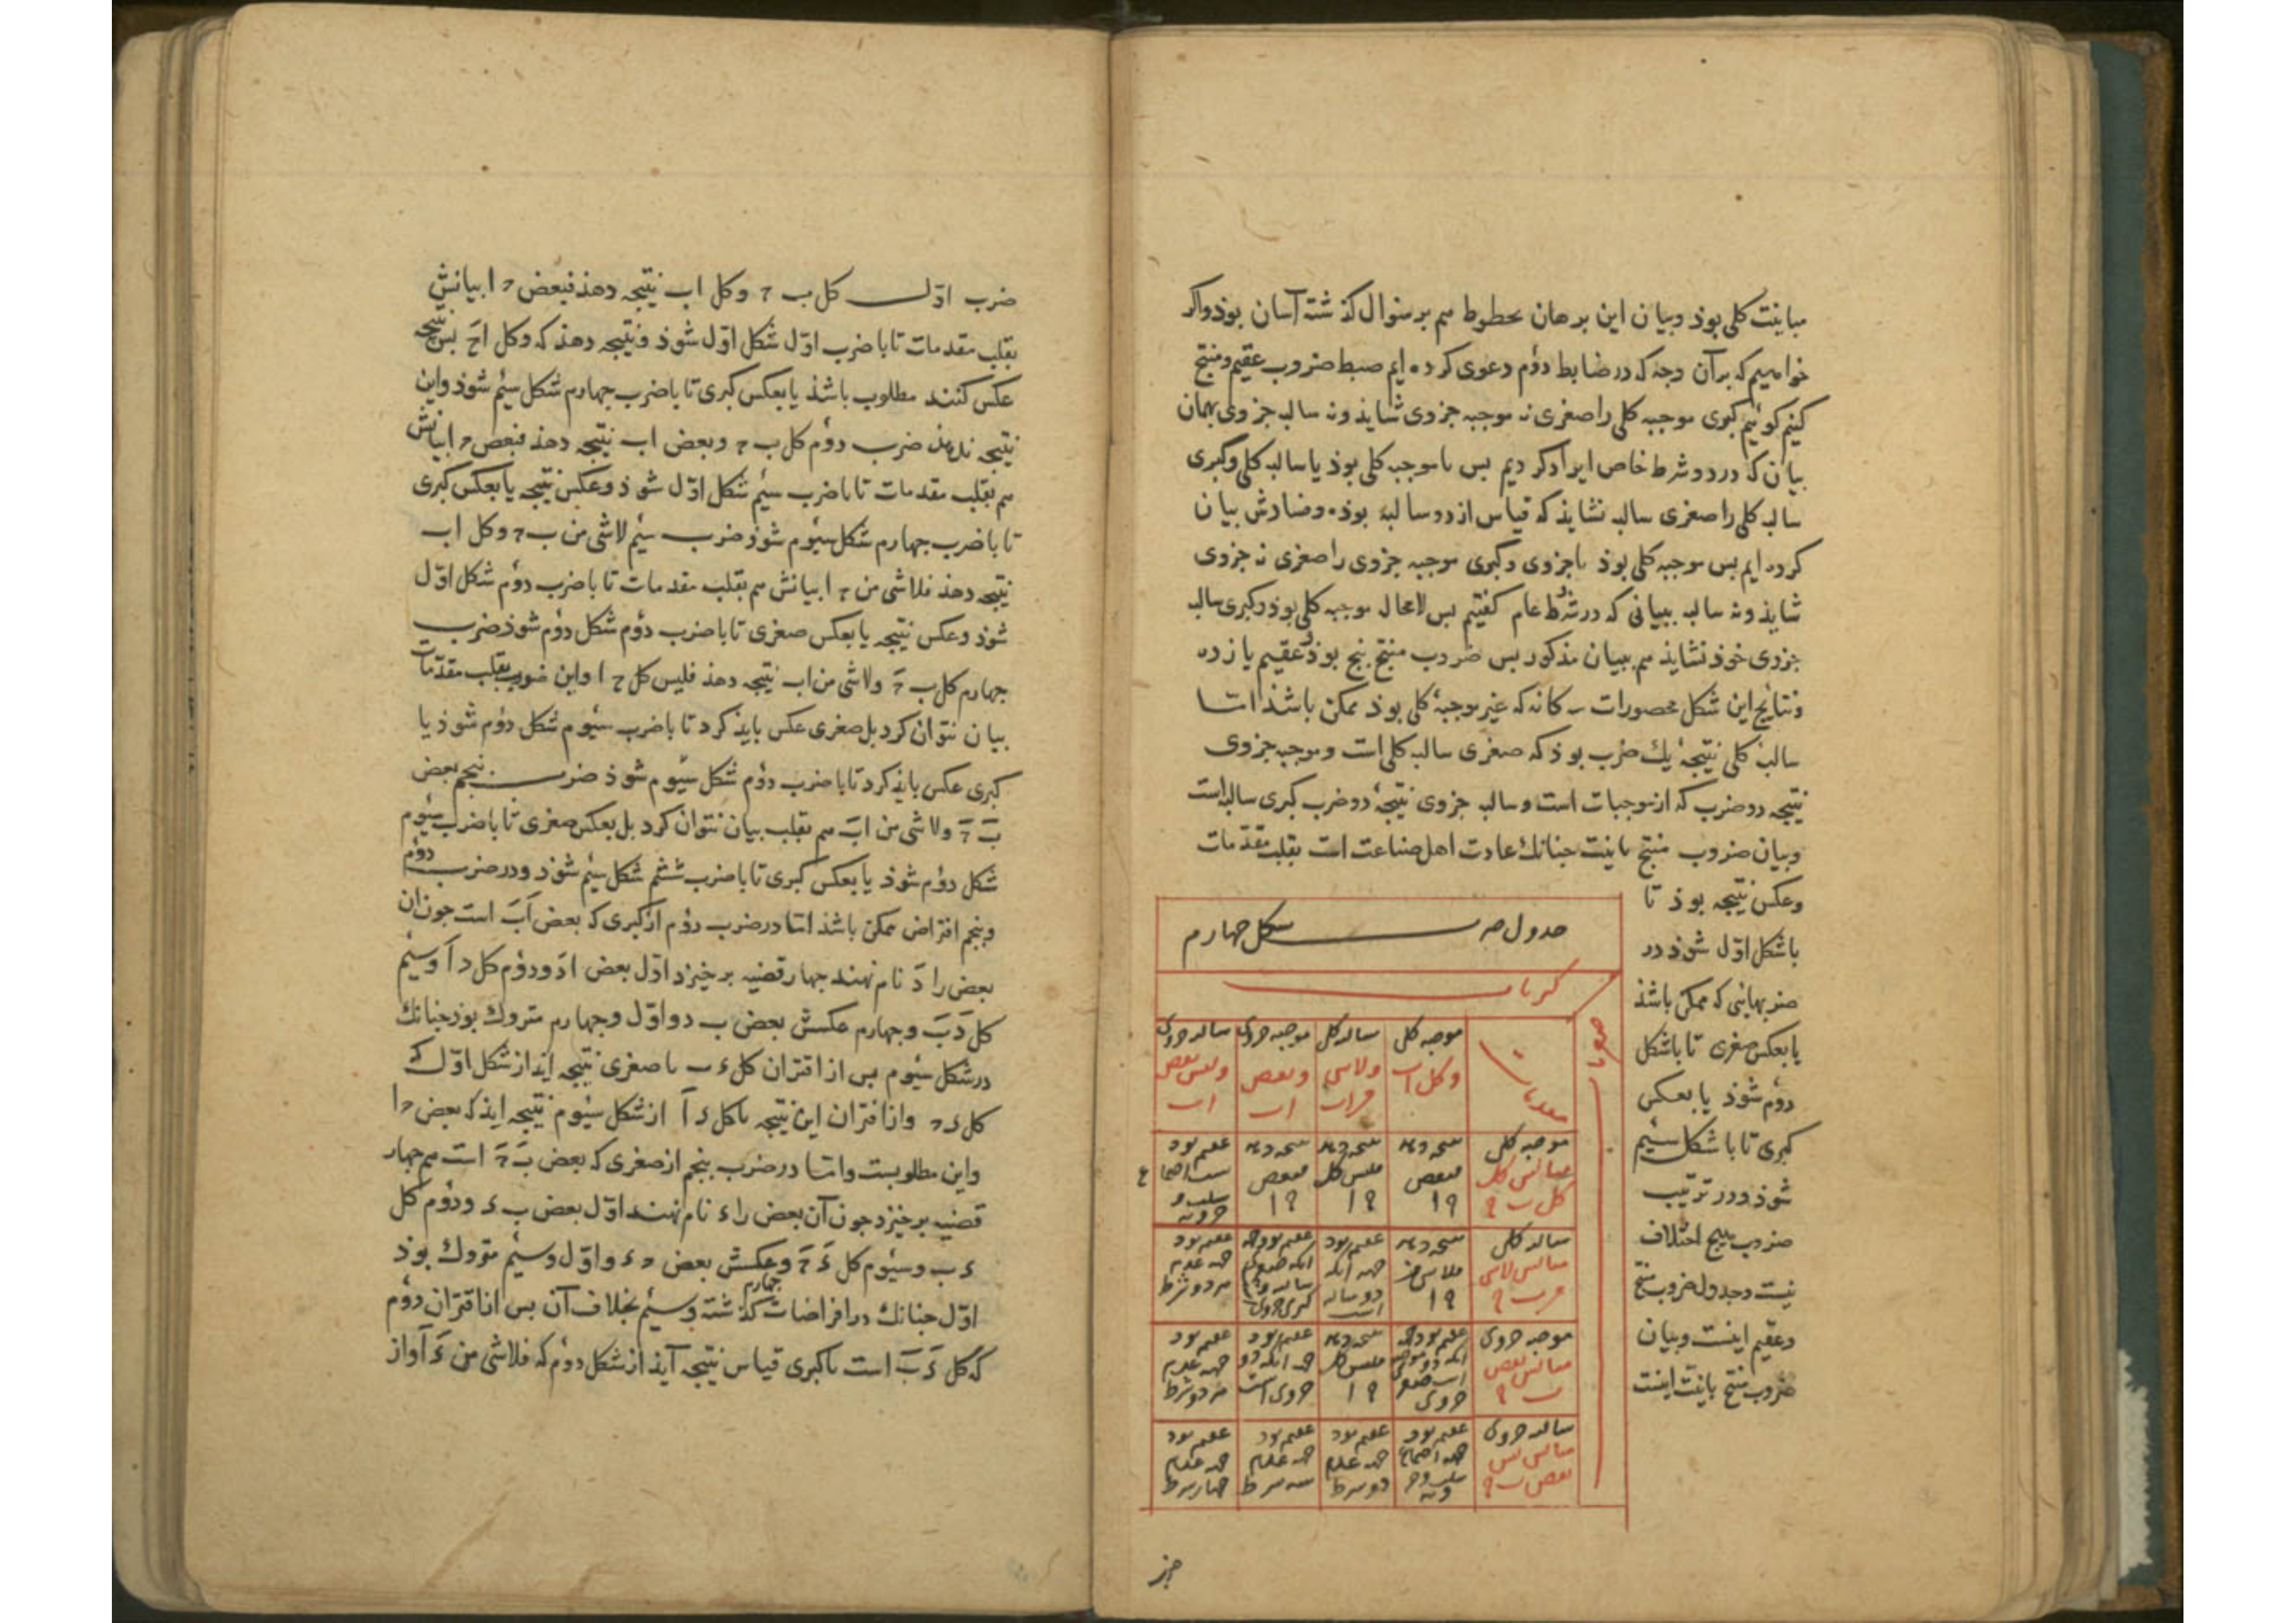 مباینت کلی بوذ وبیان این برهان بخطوط هم برمنوال کذشته آسان بوذ واکر
خواهیم که برآن وجه که در ضابط دوُم دعوی کرده ایم ضبط ضروب عقیم ومنتج
کنیم کوئیم کبری موجبه کلی را صغری نه موجبه جزوی شاید ونه سالبه جزوی بهمان
بیان که در دو شرط خاص ایراد کردیم بس یا موجبه کلی بوذ یا سالبه کلی وکبری
سالبه کلی را صغری سالبه نشاید که قیاس از دو سالبه بوذه وفسادش بیان
کرده ایم بس موجبه کلی بوذ یا جزوی وکبری موجبه جزوی را صغری نه جزوی
شاید ونه سالبه ببیانی که در شرط عام کفتیم بس لامحاله موجبه کلی بوذ وکبری سالبه
جزوی خوذ نشاید هم ببیان مذکور بس ضروب منتج پنج بوذ وعقیم یازده
ونتایج این شکل محصورات سه کانه که غیر موجبهٔ کلی بوذ ممکن باشذ امّا
سالبهٔ کلی نتیجهٔ یك ضرب بوذ که صغری سالبه کلی است وموجبه جزوی
نتیجه دو ضرب که از موجبات است وسالبه جزوی نتیجهٔ دو ضرب کبری سالبه است
وبیان ضروب منتج باینت جنانك عادت اهل صناعت است بقلب مقدّمات
وعکس نتیجه بوذ تا
باشکل اوّل شوذ در
ضربهایی که ممکن باشذ
یا بعکس صغری تا باشکل
دوُم شوذ یا بعکس
کبری تا باشکل سیُم
شوذ ودر ترتیب
ضروب هیچ اختلاف
نیست وجدول ضروب منتج
وعقیم اینست وبیان
ضروب منتج باینت اینست
جدول ضرب شکل جهارم
کبریات
صغریات
موجبه کلی وکل اب
سالبه کلی ولاشی من اب
موجبه جزوی وبعض اب
سالبه جزوی ولیس بعض اب
موجبه کلی مثالش کل کل ب ج
نتیجه دهد فبعض ج ا
نتیجه دهد فلیس کل ج ا
نتیجه دهد فبعض ج ا
سالبه کلی مثالش لاشی من ب ج
نتیجه دهد فلاشی من ج ا
عقیم بود جهه آنکه دو سالبه است
عقیم بود جهه عدم هر دو شرط
موجبه جزوی مثالش بعض ب ج
نتیجه دهد فلیس کل ج ا
عقیم بود جهه آنکه دو جزوی است
عقیم بود جهه عدم هر دو شرط
سالبه جزوی مثالش لیس بعض ب ج
عقیم بود جهه عدم دو شرط
عقیم بود جهه عدم سه شرط
عقیم بود جهه عدم چهار شرط
ضرب اوّل کل ب ج وکل اب نتیجه دهذ فبعض ج ا بیانش
بقلب مقدمات تا با ضرب اوّل شکل اوّل شوذ ونتیجه دهذ که وکل اج بس نتیجه
عکس کنند مطلوب باشذ یا بعکس کبری تا با ضرب جهارم شکل سیُم شوذ واین
نتیجه بدهذ ضرب دوُم کل ب ج وبعض اب نتیجه دهذ فبعض ج ا بیانش
هم بقلب مقدمات تا با ضرب سیُم شکل اوّل شوذ وعکس نتیجه یا بعکس کبری
تا با ضرب جهارم شکل سیُوم شوذ ضرب سیُم لاشی من ب ج وکل اب
نتیجه دهذ فلاشی من ج ا بیانش هم بقلب مقدمات تا با ضرب دوُم شکل اوّل
شوذ وعکس نتیجه یا بعکس صغری تا با ضرب دوُم شکل دوُم شوذ ضرب
جهارم کل ب ج ولاشی من اب نتیجه دهذ فلیس کل ج ا واین ضرب بقلب مقدّمات
بیان نتوان کرد بل صغری عکس بایذ کرد تا با ضرب سیُوم شکل دوُم شوذ یا
کبری عکس بایذ کرد تا با ضرب دوُم شکل سیُوم شوذ ضرب پنجم بعض
ب ج ولاشی من اب هم بقلب بیان نتوان کرد بل بعکس صغری تا با ضرب سیُوم
شکل دوُم شوذ یا بعکس کبری تا با ضرب ششم شکل سیُم شوذ ودر ضرب دوُم
وپنجم افتراض ممکن باشذ امّا در ضرب دوُم از کبری که بعض اب است جون آن
بعض را د نام نهند جهار قضیه برخیزد اوّل بعض اد ودوُم کل د ا وسیُم
کل د ب وجهارم عکسش بعض ب د واوّل وجهارم متروك بوذ جنانك
در شکل سیُوم بس از اقتران کل د ب با صغری نتیجه آیذ از شکل اوّل که
کل د ج واز اقتران این نتیجه با کل د ا از شکل سیُوم نتیجه آیذ که بعض ج ا
واین مطلوبست وامّا در ضرب پنجم از صغری که بعض ب ج است هم جهار
قضیه برخیزد جون آن بعض را د نام نهند اوّل بعض ب د ودوُم کل
د ب وسیُوم کل د ج وعکسش بعض ج د واوّل وسیُم متروك بوذ
اوّل جنانك در افتراضات کذشته وسیُم بخلاف آن بس از اقتران دوُم
جهارم
که کل د ب است با کبری قیاس نتیجه آیذ از شکل دوُم که فلاشی من د ا واز
جز